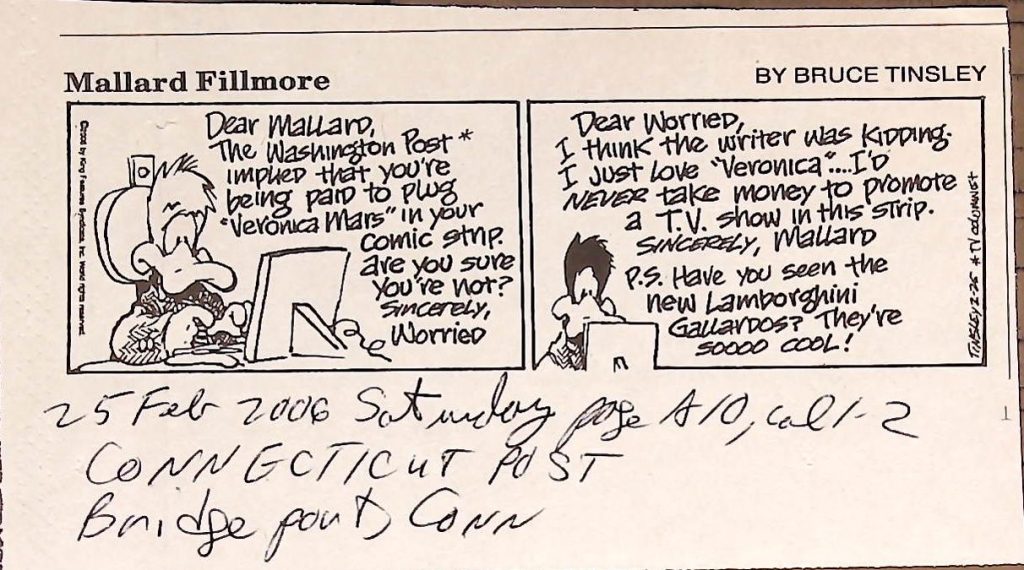 Mallard Fillmore
BY BRUCE TINSLEY
©2006 by King Features Syndicate, Inc. World rights reserved.
Dear Mallard,
The Washington Post*
implied that you're
being paid to plug
"Veronica Mars" in your
comic strip.
are you sure
you're not?
Sincerely,
Worried
Dear Worried,
I think the writer was kidding.
I just love "Veronica"....I'd
NEVER take money to promote
a T.V. show in this strip.
SINCERELY, Mallard
P.S. Have you seen the
new Lamborghini
Gallardos? They're
SOOOO COOL!
TINSLEY 2-25 *TV COLUMNIST
25 Feb 2006 Saturday page A10, col 1-2
CONNECTICUT POST
Bridgeport, CONN